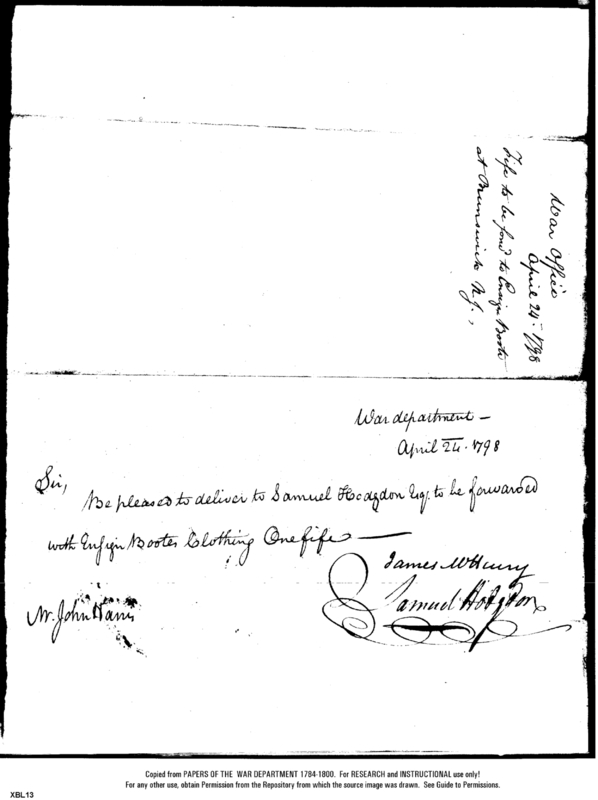 War Office
April 24. 1798
Fife to be forwd to Ensign Boote
at Brunswick N.J.,
War department —
April 24. 1798
Sir,
Be pleased to deliver to Samuel Hodgdon Esqr. to be forwarded
with Ensign Bootes Clothing One fife —
James McHenry
Samuel Hodgdon
Mr. John Harris
Copied from PAPERS OF THE WAR DEPARTMENT 1784-1800. For RESEARCH and INSTRUCTIONAL use only!
For any other use, obtain Permission from the Repository from which the source image was drawn. See Guide to Permissions.
XBL13